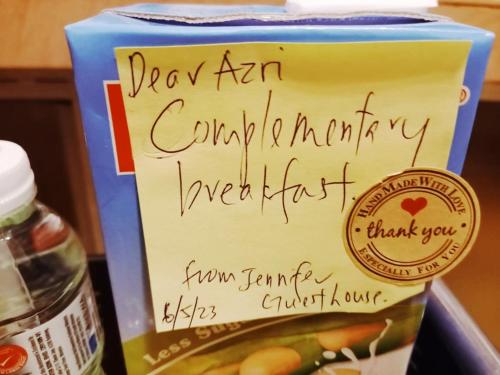 Dear Azri
Complementary
breakfast.
from Jennifer
Guesthouse.
16/5/23
HAND MADE WITH LOVE
thank you
ESPECIALLY FOR YOU
Less Sug